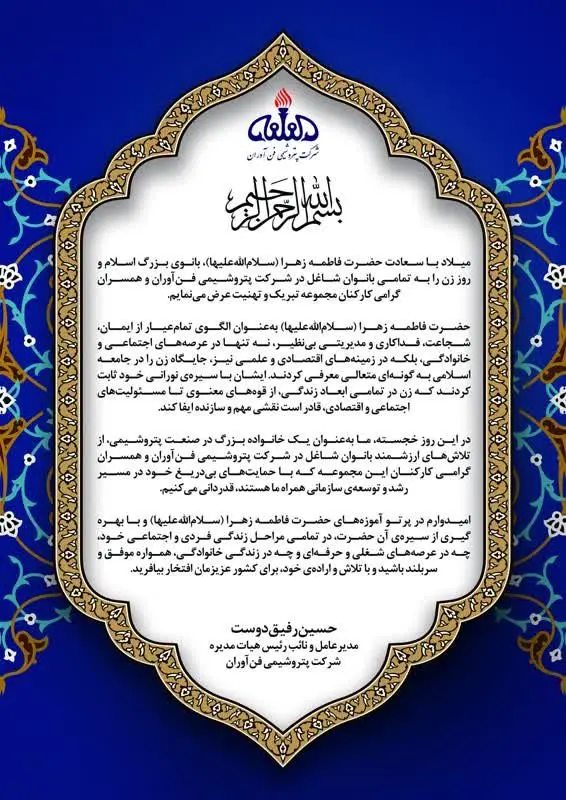 شرکت پتروشیمی فن آوران
بسم الله الرحمن الرحیم
میلاد با سعادت حضرت فاطمه زهرا (سلام‌الله‌علیها)، بانوی بزرگ اسلام و
روز زن را به تمامی بانوان شاغل در شرکت پتروشیمی فن‌آوران و همسران
گرامی کارکنان مجموعه تبریک و تهنیت عرض می‌نمایم.
حضرت فاطمه زهرا (سلام‌الله‌علیها) به‌عنوان الگوی تمام‌عیار از ایمان،
شجاعت، فداکاری و مدیریتی بی‌نظیر، نه تنها در عرصه‌های اجتماعی و
خانوادگی، بلکه در زمینه‌های اقتصادی و علمی نیز، جایگاه زن را در جامعه
اسلامی به گونه‌ای متعالی معرفی کردند. ایشان با سیره‌ی نورانی خود ثابت
کردند که زن در تمامی ابعاد زندگی، از قوه‌های معنوی تا مسئولیت‌های
اجتماعی و اقتصادی، قادر است نقشی مهم و سازنده ایفا کند.
در این روز خجسته، ما به‌عنوان یک خانواده بزرگ در صنعت پتروشیمی، از
تلاش‌های ارزشمند بانوان شاغل در شرکت پتروشیمی فن‌آوران و همسران
گرامی کارکنان این مجموعه که با حمایت‌های بی‌دریغ خود در مسیر
رشد و توسعه‌ی سازمانی همراه ما هستند، قدردانی می‌کنیم.
امیدوارم در پرتو آموزه‌های حضرت فاطمه زهرا (سلام‌الله‌علیها) و با بهره
گیری از سیره‌ی آن حضرت، در تمامی مراحل زندگی فردی و اجتماعی خود،
چه در عرصه‌های شغلی و حرفه‌ای و چه در زندگی خانوادگی، همواره موفق و
سربلند باشید و با تلاش و اراده‌ی خود، برای کشور عزیزمان افتخار بیافرید.
حسین رفیق‌دوست
مدیرعامل و نائب رئیس هیات مدیره
شرکت پتروشیمی فن‌آوران